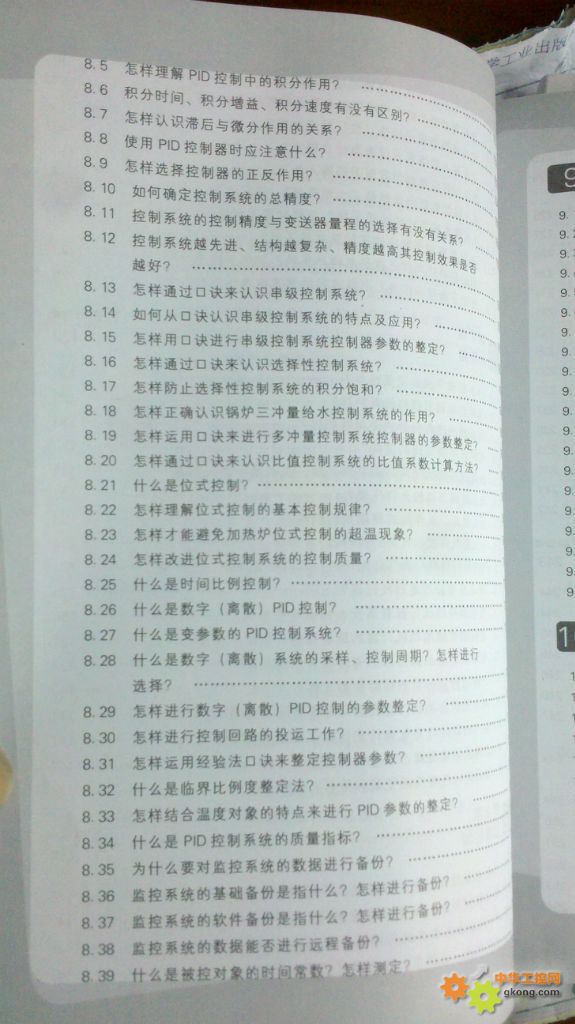 8.5 怎样理解 PID 控制中的积分作用？ ……
8.6 积分时间、积分增益、积分速度有没有区别？ ……
8.7 怎样认识滞后与微分作用的关系？ ……
8.8 使用 PID 控制器时应注意什么？ ……
8.9 怎样选择控制器的正反作用？ ……
8.10 如何确定控制系统的总精度？ ……
8.11 控制系统的控制精度与变送器量程的选择有没有关系？ ……
8.12 控制系统越先进、结构越复杂、精度越高其控制效果是否
越好？ ……
8.13 怎样通过口诀来认识串级控制系统？ ……
8.14 如何从口诀认识串级控制系统的特点及应用？ ……
8.15 怎样用口诀进行串级控制系统控制器参数的整定？ ……
8.16 怎样通过口诀来认识选择性控制系统？ ……
8.17 怎样防止选择性控制系统的积分饱和？ ……
8.18 怎样正确认识锅炉三冲量给水控制系统的作用？ ……
8.19 怎样运用口诀来进行多冲量控制系统控制器的参数整定？
8.20 怎样通过口诀来认识比值控制系统的比值系数计算方法？ ……
8.21 什么是位式控制？ ……
8.22 怎样理解位式控制的基本控制规律？ ……
8.23 怎样才能避免加热炉位式控制的超温现象？ ……
8.24 怎样改进位式控制系统的控制质量？ ……
8.25 什么是时间比例控制？ ……
8.26 什么是数字（离散）PID 控制？ ……
8.27 什么是变参数的 PID 控制系统？ ……
8.28 什么是数字（离散）系统的采样、控制周期？怎样进行
选择？ ……
8.29 怎样进行数字（离散）PID 控制的参数整定？ ……
8.30 怎样进行控制回路的投运工作？ ……
8.31 怎样运用经验法口诀来整定控制器参数？ ……
8.32 什么是临界比例度整定法？ ……
8.33 怎样结合温度对象的特点来进行 PID 参数的整定？ ……
8.34 什么是 PID 控制系统的质量指标？ ……
8.35 为什么要对监控系统的数据进行备份？ ……
8.36 监控系统的基础备份是指什么？怎样进行备份？ ……
8.37 监控系统的软件备份是指什么？怎样进行备份？ ……
8.38 监控系统的数据能否进行远程备份？ ……
8.39 什么是被控对象的时间常数？怎样测定？ ……
学工业出版
中华工控网
gkong.com